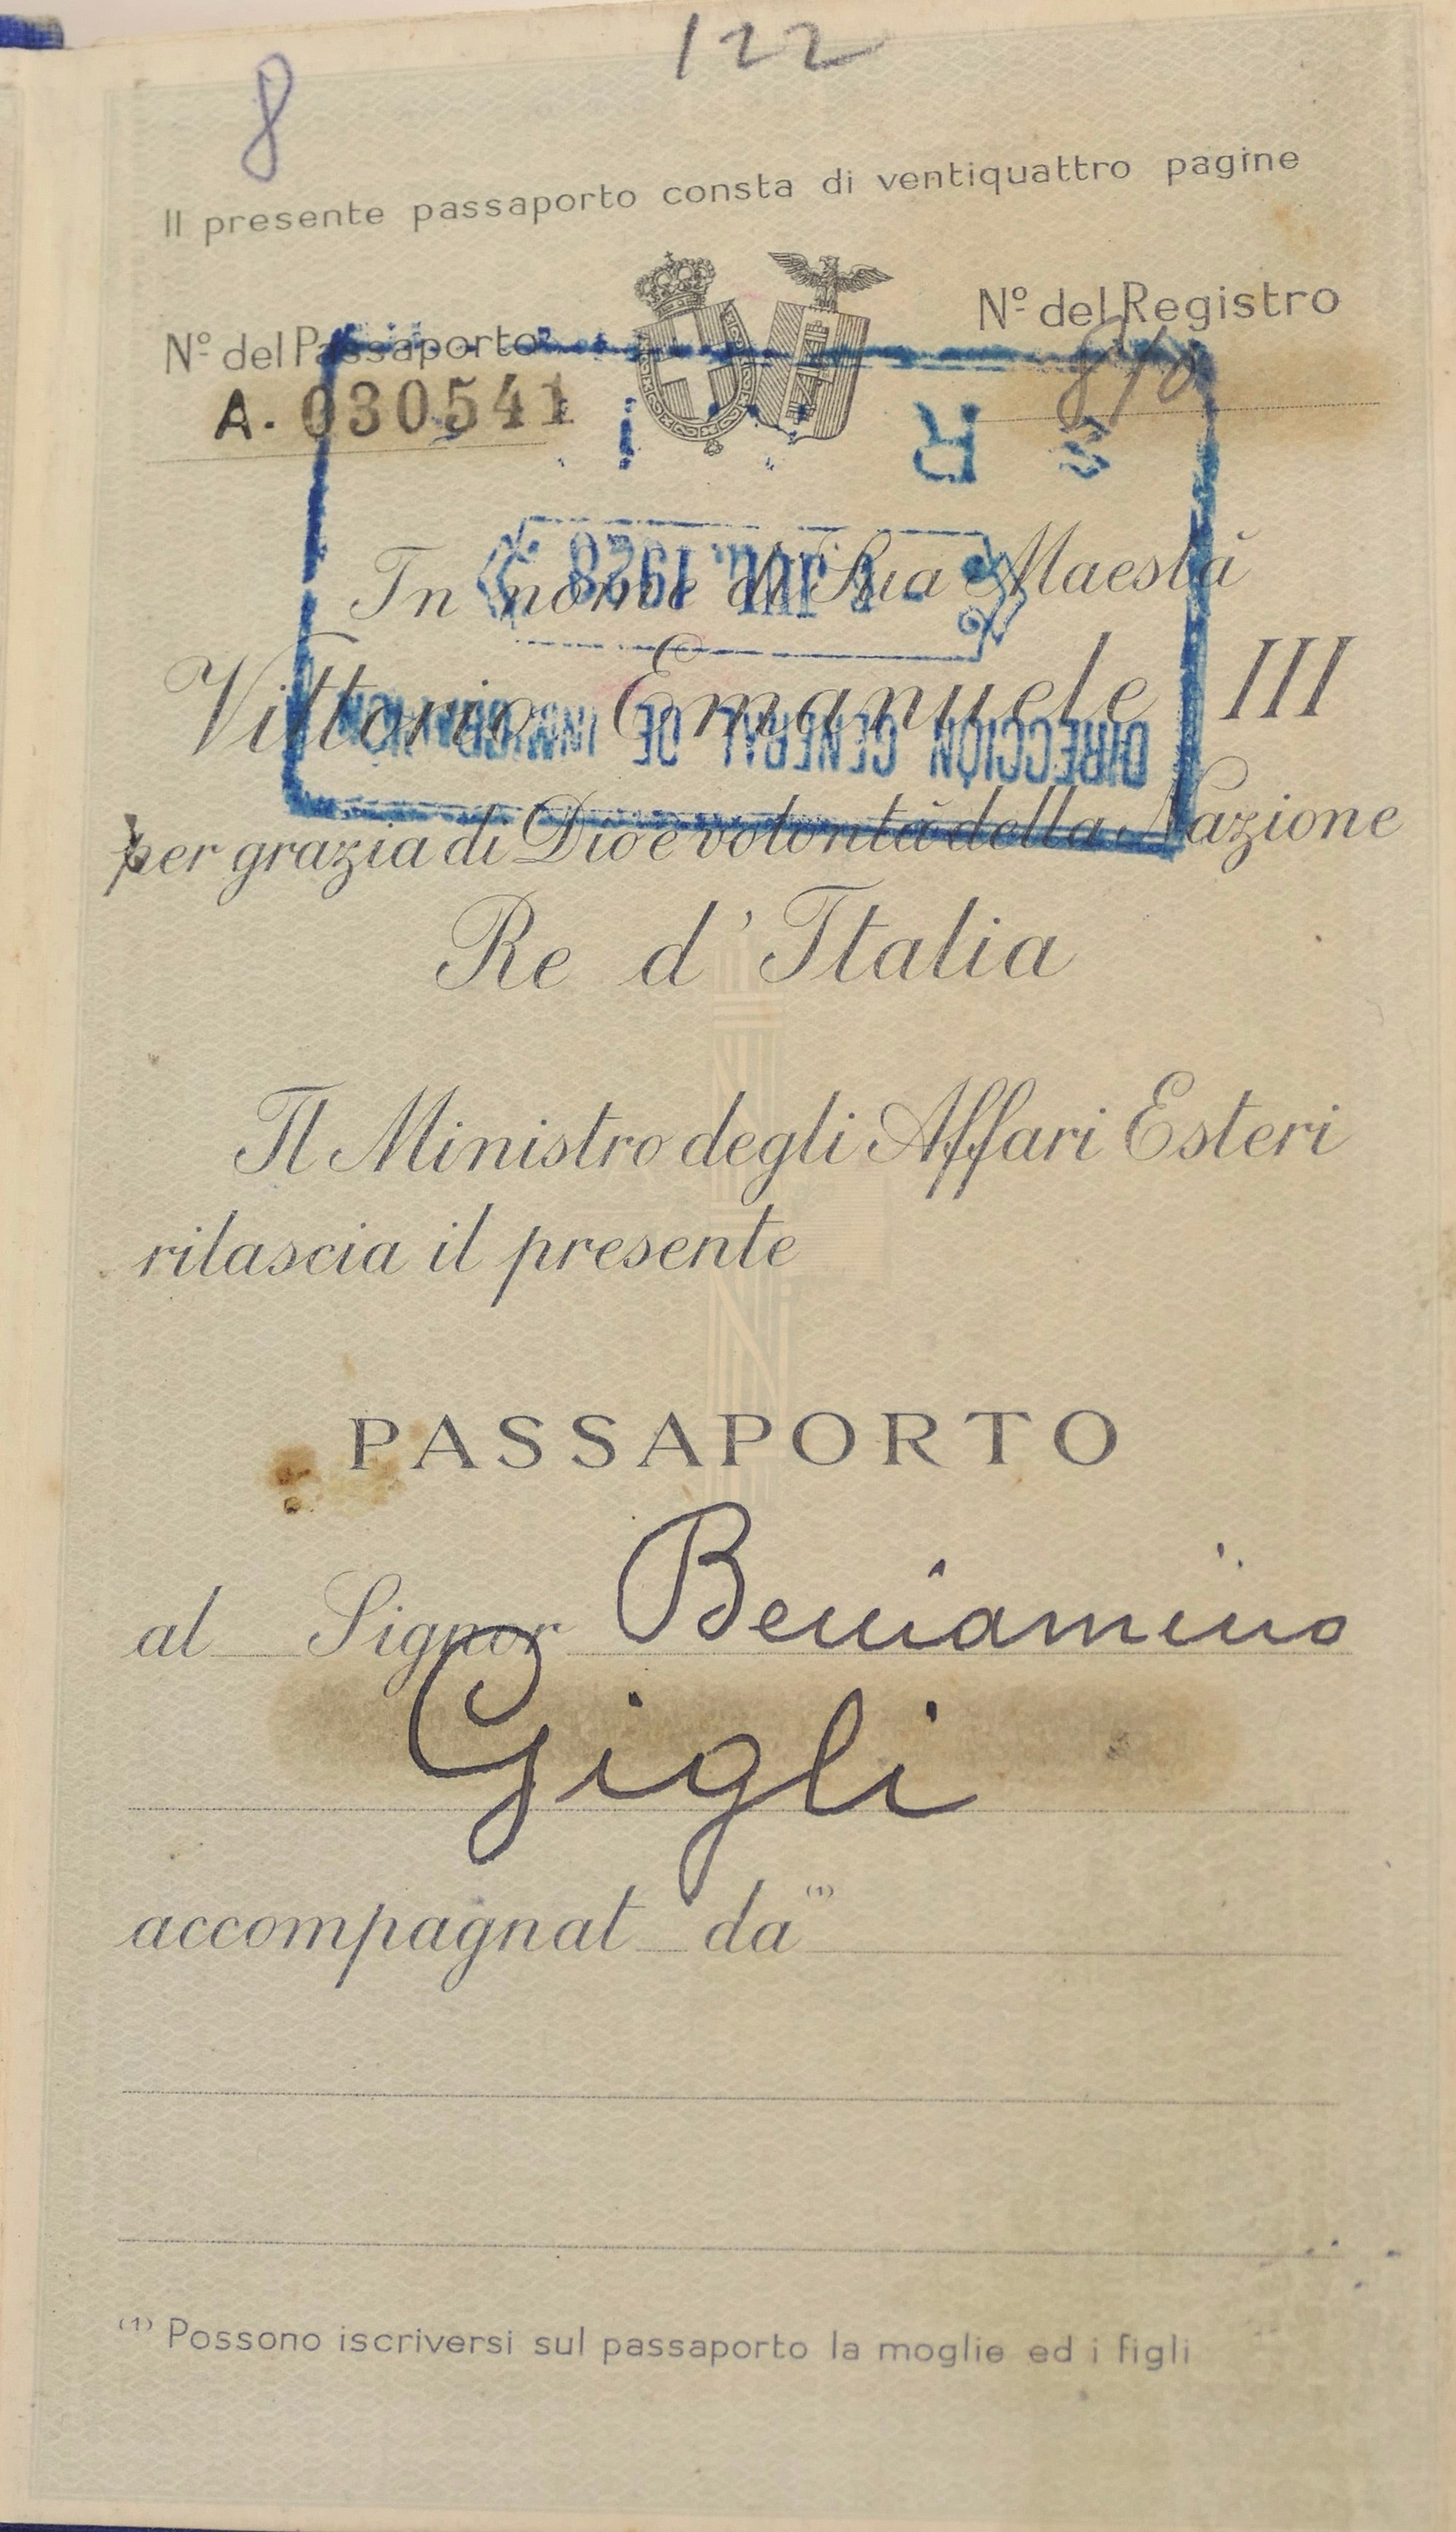 122
8
Il presente passaporto consta di ventiquattro pagine
Nº del Passaporto
Nº del Registro
A. 030541
810
R
- 1 JUL. 1928
In nome di Sua Maestà
Vittorio Emanuele III
DIRECCIÓN GENERAL DE INMIGRACIÓN
per grazia di Dio e volontà della Nazione
Re d'Italia
Il Ministro degli Affari Esteri
rilascia il presente
PASSAPORTO
al Signor Beniamino
Gigli
accompagnat da (1)
(1) Possono iscriversi sul passaporto la moglie ed i figli